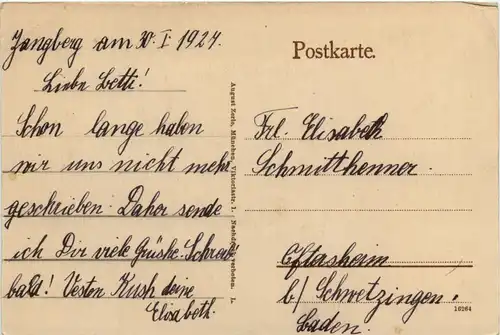 Zangberg am 30. I. 1924.
Liebe Betti!
Schon lange haben
wir uns nicht mehr
geschrieben. Daher sende
ich Dir viele Grüshe. Schreib
bald! Vesten Kush deine
Elisabeth.
August Zerle, München, Viktoriastr. 1. Nachdruck verboten. L.
Postkarte.
Frl. Elisabeth
Schmitthenner.
Oftasheim
b/ Schwetzingen.
Baden.
16264